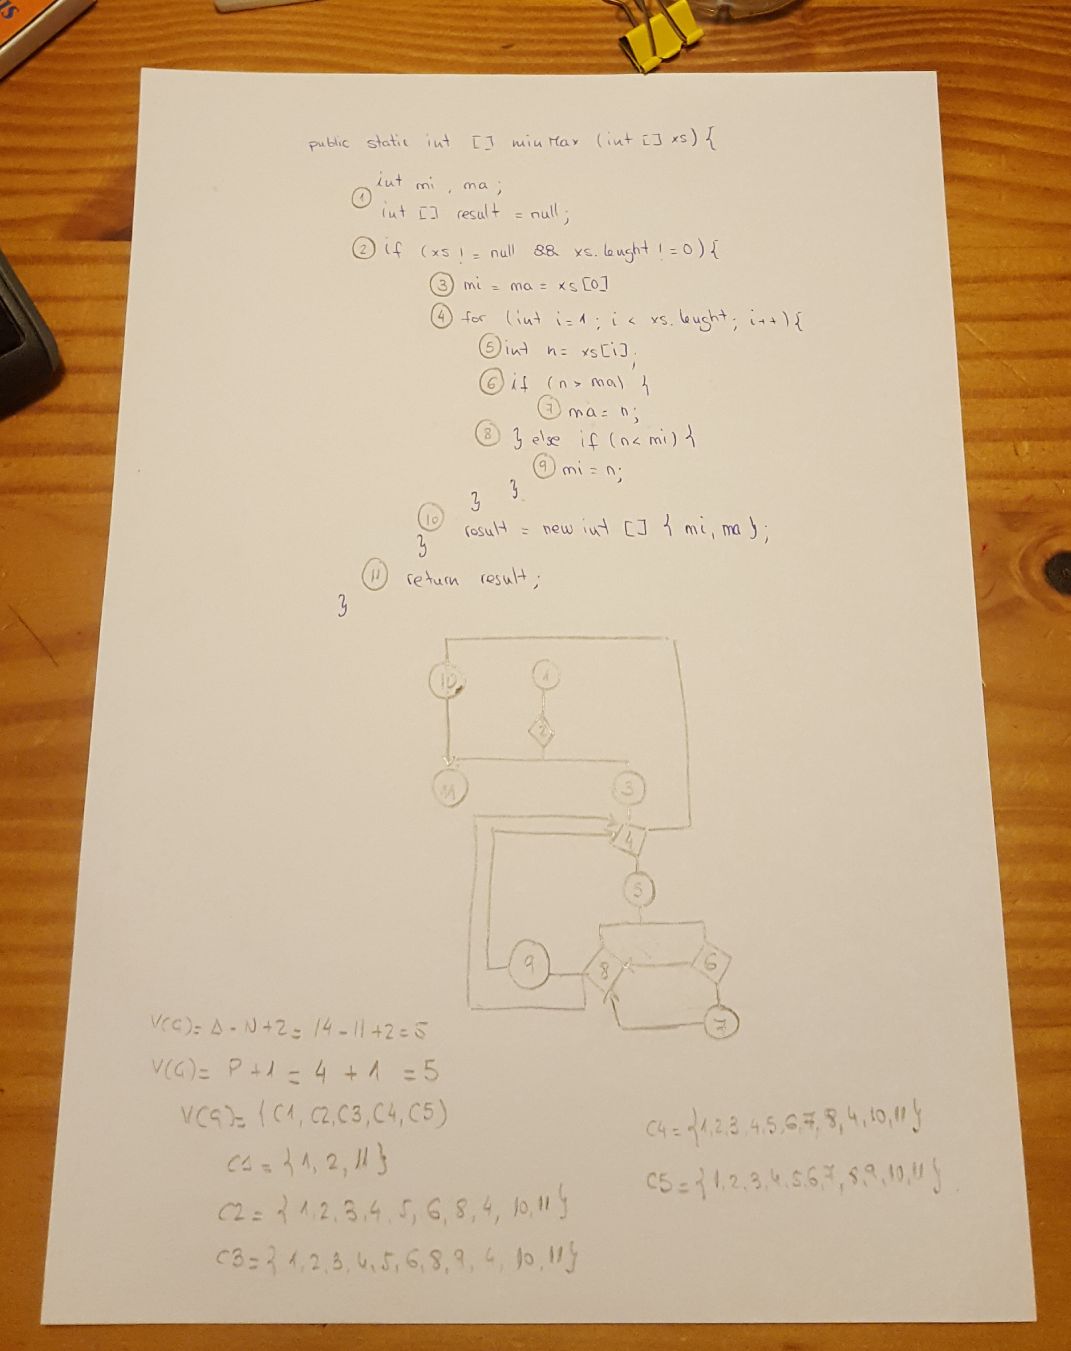 public static int [] minMax (int [] xs) {
① int mi, ma;
int [] result = null;
② if (xs != null && xs.lenght != 0) {
③ mi = ma = xs[0]
④ for (int i=1; i < xs.lenght; i++) {
⑤ int n= xs[i];
⑥ if (n > ma) {
⑦ ma = n;
⑧ } else if (n< mi) {
⑨ mi = n;
} }
⑩ result = new int [] { mi, ma };
}
⑪ return result;
}
10 1
2
11 3
4
5
9 8 6
7
V(G)= A - N+2 = 14 - 11 +2 = 5
V(G)= P+1 = 4 + 1 = 5
V(G)= {C1, C2, C3, C4, C5}
C1 = {1, 2, 11}
C2 = {1,2,3,4,5,6,8,4,10,11}
C3 = {1,2,3,4,5,6,8,9,4,10,11}
C4 = {1,2,3,4,5,6,7,8,4,10,11}
C5 = {1,2,3,4,5,6,7,8,9,10,11}.